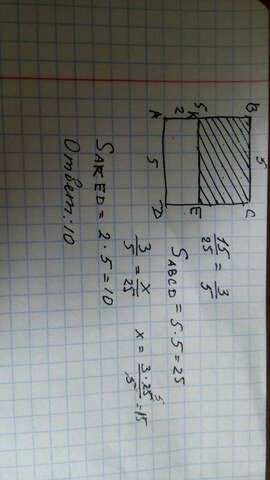 B 5 C
5
K E
2
A 5 D
15/25 = 3/5
S ABCD = 5 · 5 = 25
3/5 = x/25 x = 3 · 25 5 / 5 = 15
S AKED = 2 · 5 = 10
Ответ: 10